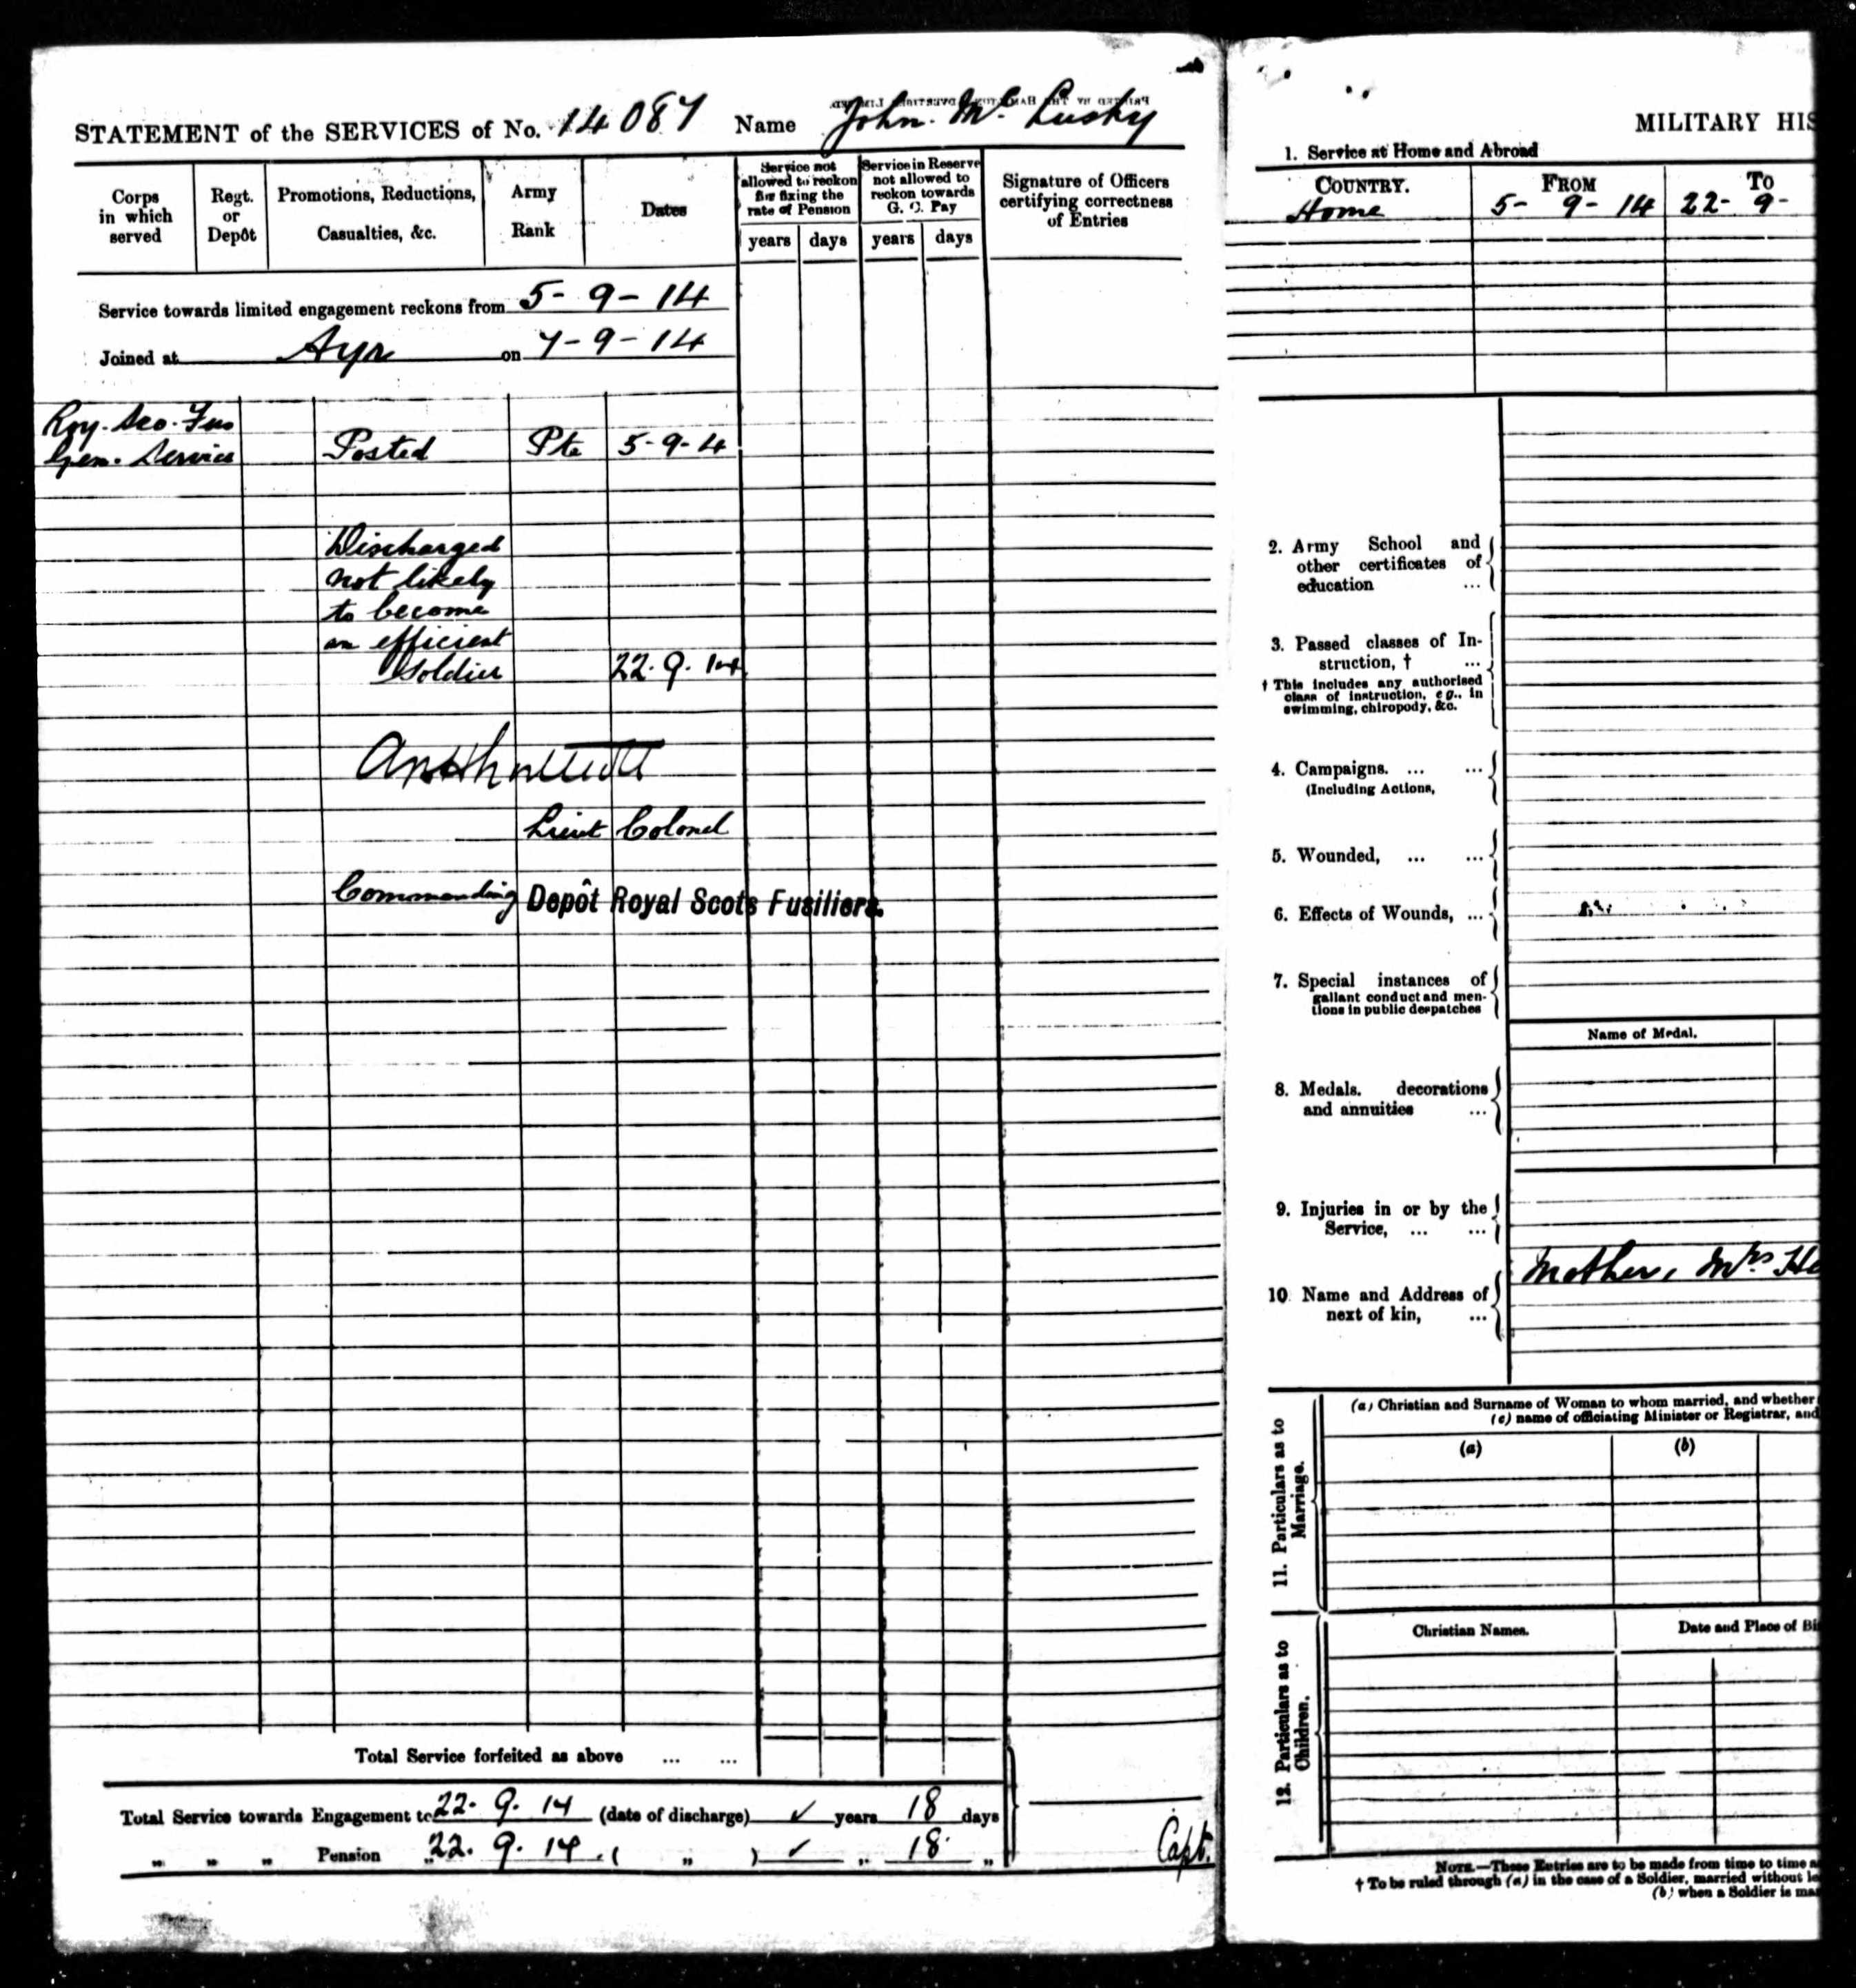 STATEMENT of the SERVICES of No. 14087 Name John Mc Lusky
Corps in which served
Regt. or Depôt
Promotions, Reductions, Casualties, &c.
Army Rank
Dates
Service not allowed to reckon for fixing the rate of Pension
years days
Service in Reserve not allowed to reckon towards G. C. Pay
years days
Signature of Officers certifying correctness of Entries
Service towards limited engagement reckons from 5-9-14
Joined at Ayr on 7-9-14
Roy. Sco. Fus
Gen. Service Posted Pte 5-9-14
Discharged
not likely
to become
an efficient
Soldier 22.9.14
Lieut Colonel
Commanding Depôt Royal Scots Fusiliers.
Total Service forfeited as above ... ...
Total Service towards Engagement to 22. 9. 14 (date of discharge) ✓ years 18 days
„ „ „ Pension „ 22. 9. 14. ( „ ) ✓ „ 18 „
Capt.
MILITARY HIS
1. Service at Home and Abroad
COUNTRY. FROM TO
Home 5- 9- 14 22- 9-
2. Army School and
other certificates of
education ...
3. Passed classes of In-
struction, † ...
† This includes any authorised
class of instruction, eg., in
swimming, chiropody, &c.
4. Campaigns. ... ...
(Including Actions,
5. Wounded, ... ...
6. Effects of Wounds, ...
7. Special instances of
gallant conduct and men-
tions in public despatches
Name of Medal.
8. Medals, decorations
and annuities ...
9. Injuries in or by the
Service, ... ...
Mother, Mrs He
10 Name and Address of
next of kin, ...
11. Particulars as to
Marriage.
(a) Christian and Surname of Woman to whom married, and whether
(c) name of officiating Minister or Registrar, and
(a) (b)
12. Particulars as to
Children.
Christian Names. Date and Place of Bi
NOTE.—These Entries are to be made from time to time a
† To be ruled through (a) in the case of a Soldier, married without le
(b) when a Soldier is ma